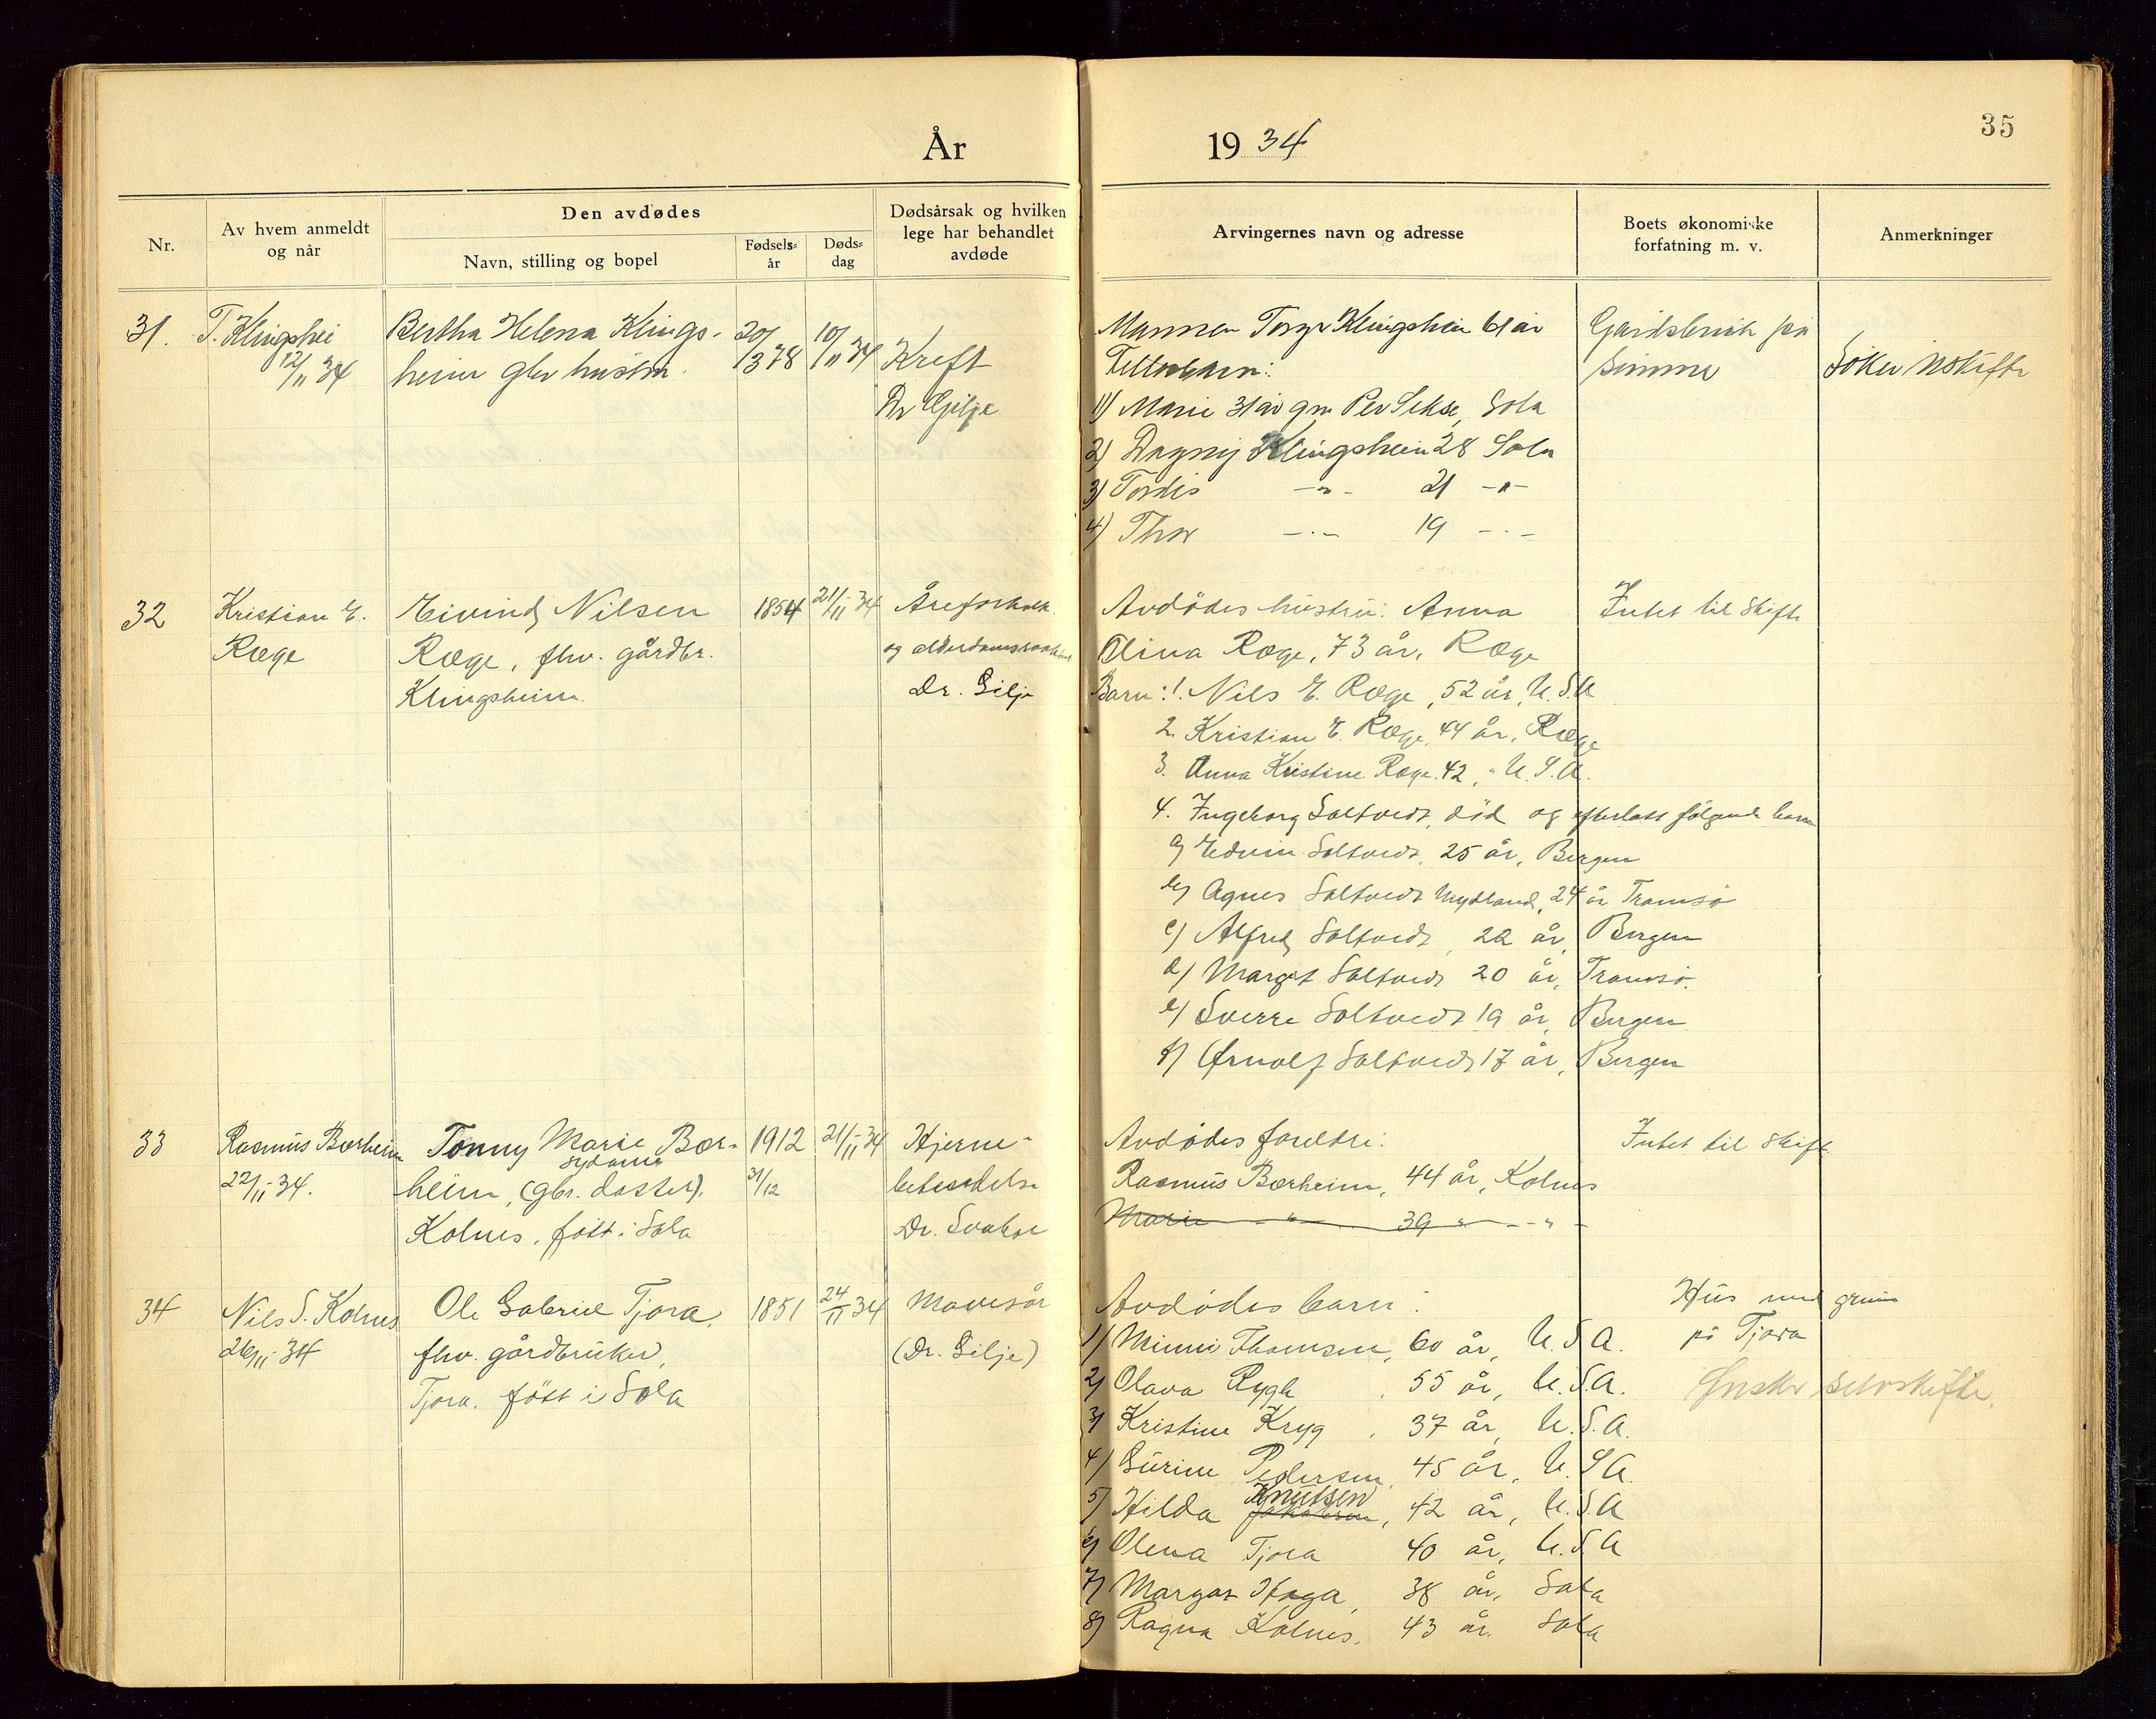 År
19 34
35
Nr.
Av hvem anmeldt og når
Den avdødes
Navn, stilling og bopel
Fødsels-år
Døds-dag
Dødsårsak og hvilken lege har behandlet avdøde
Arvingernes navn og adresse
Boets økonomiske forfatning m. v.
Anmerkninger
31.
T. Klingshei
12/11 34
Bertha Helena Klings-
heim gbr hustru.
20/3 78
10/11 34
Kreft
Dr Gilje
Mannen Torger Klingsheim 61 år
Fellesbarn:
1) Marie 31 år gm Per Sekse, Sola
2) Dagny Klingsheim 28 Sola
3) Tordis -"- 21 -"-
4) Thor -"- 19 -"-
Gardsbruk på
samme
Søker uskifte
32
Kristian E.
Ræge
Eivind Nilsen
Ræge, fhv. gårdbr.
Klingsheim.
1854
21/11-34
Åreforkalk.
og alderdomssvakhet
Dr. Gilje
Avdødes hustru: Anna
Olina Ræge, 73 år, Ræge
Barn: 1. Nils E. Ræge, 52 år, U.S.A
2. Kristian E. Ræge, 44 år, Ræge
3. Anna Kristine Ræge. 42, " U.S.A.
4. Ingeborg Saltvedt, død og efterlatt følgende barn
a) Edvin Saltvedt, 25 år, Bergen
b) Agnes Saltvedt Mydland, 24 år Tromsø
c) Alfred Saltvedt, 22 år, Bergen
d) Margit Saltvedt 20 år, Tromsø.
e) Sverre Saltvedt 19 år, Bergen
f) Ørnulf Saltvedt 17 år, Bergen
Intet til skifte
33
Rasmus Bærheim
22/11-34.
Tonny Marie Bær-
sydame
heim, (gbr. datter).
Kolnes, født i Sola
1912
31/12
21/11-34
Hjerne-
betendelse
Dr. Svabø
Avdødes foreldre:
Rasmus Bærheim, 44 år, Kolnes
Marie " 39 " - " -
Intet til skifte
34
Nils S. Kolnes
26/11-34
Ole Gabriel Tjora,
fhv. gårdbruker,
Tjora. født i Sola
1851
24/11 34
Mavesår
(Dr. Gilje)
Avdødes barn:
1) Minni Thomsen, 60 år, U.S.A.
2) Olava Rygh, 55 år, U.S.A.
3) Kristine Kryg, 37 år, U.S.A.
4) Gurine Pedersen, 45 år, U.S.A.
Knutsen
5) Hilda Jakobsen, 42 år, U.S.A
6) Olena Tjora 40 år, U.S.A
7) Margot Haga, 38 år, Sola
8) Ragna Kolnes. 43 år. Sola
Hus med grunn
på Tjora
Ønsker selvskifte.